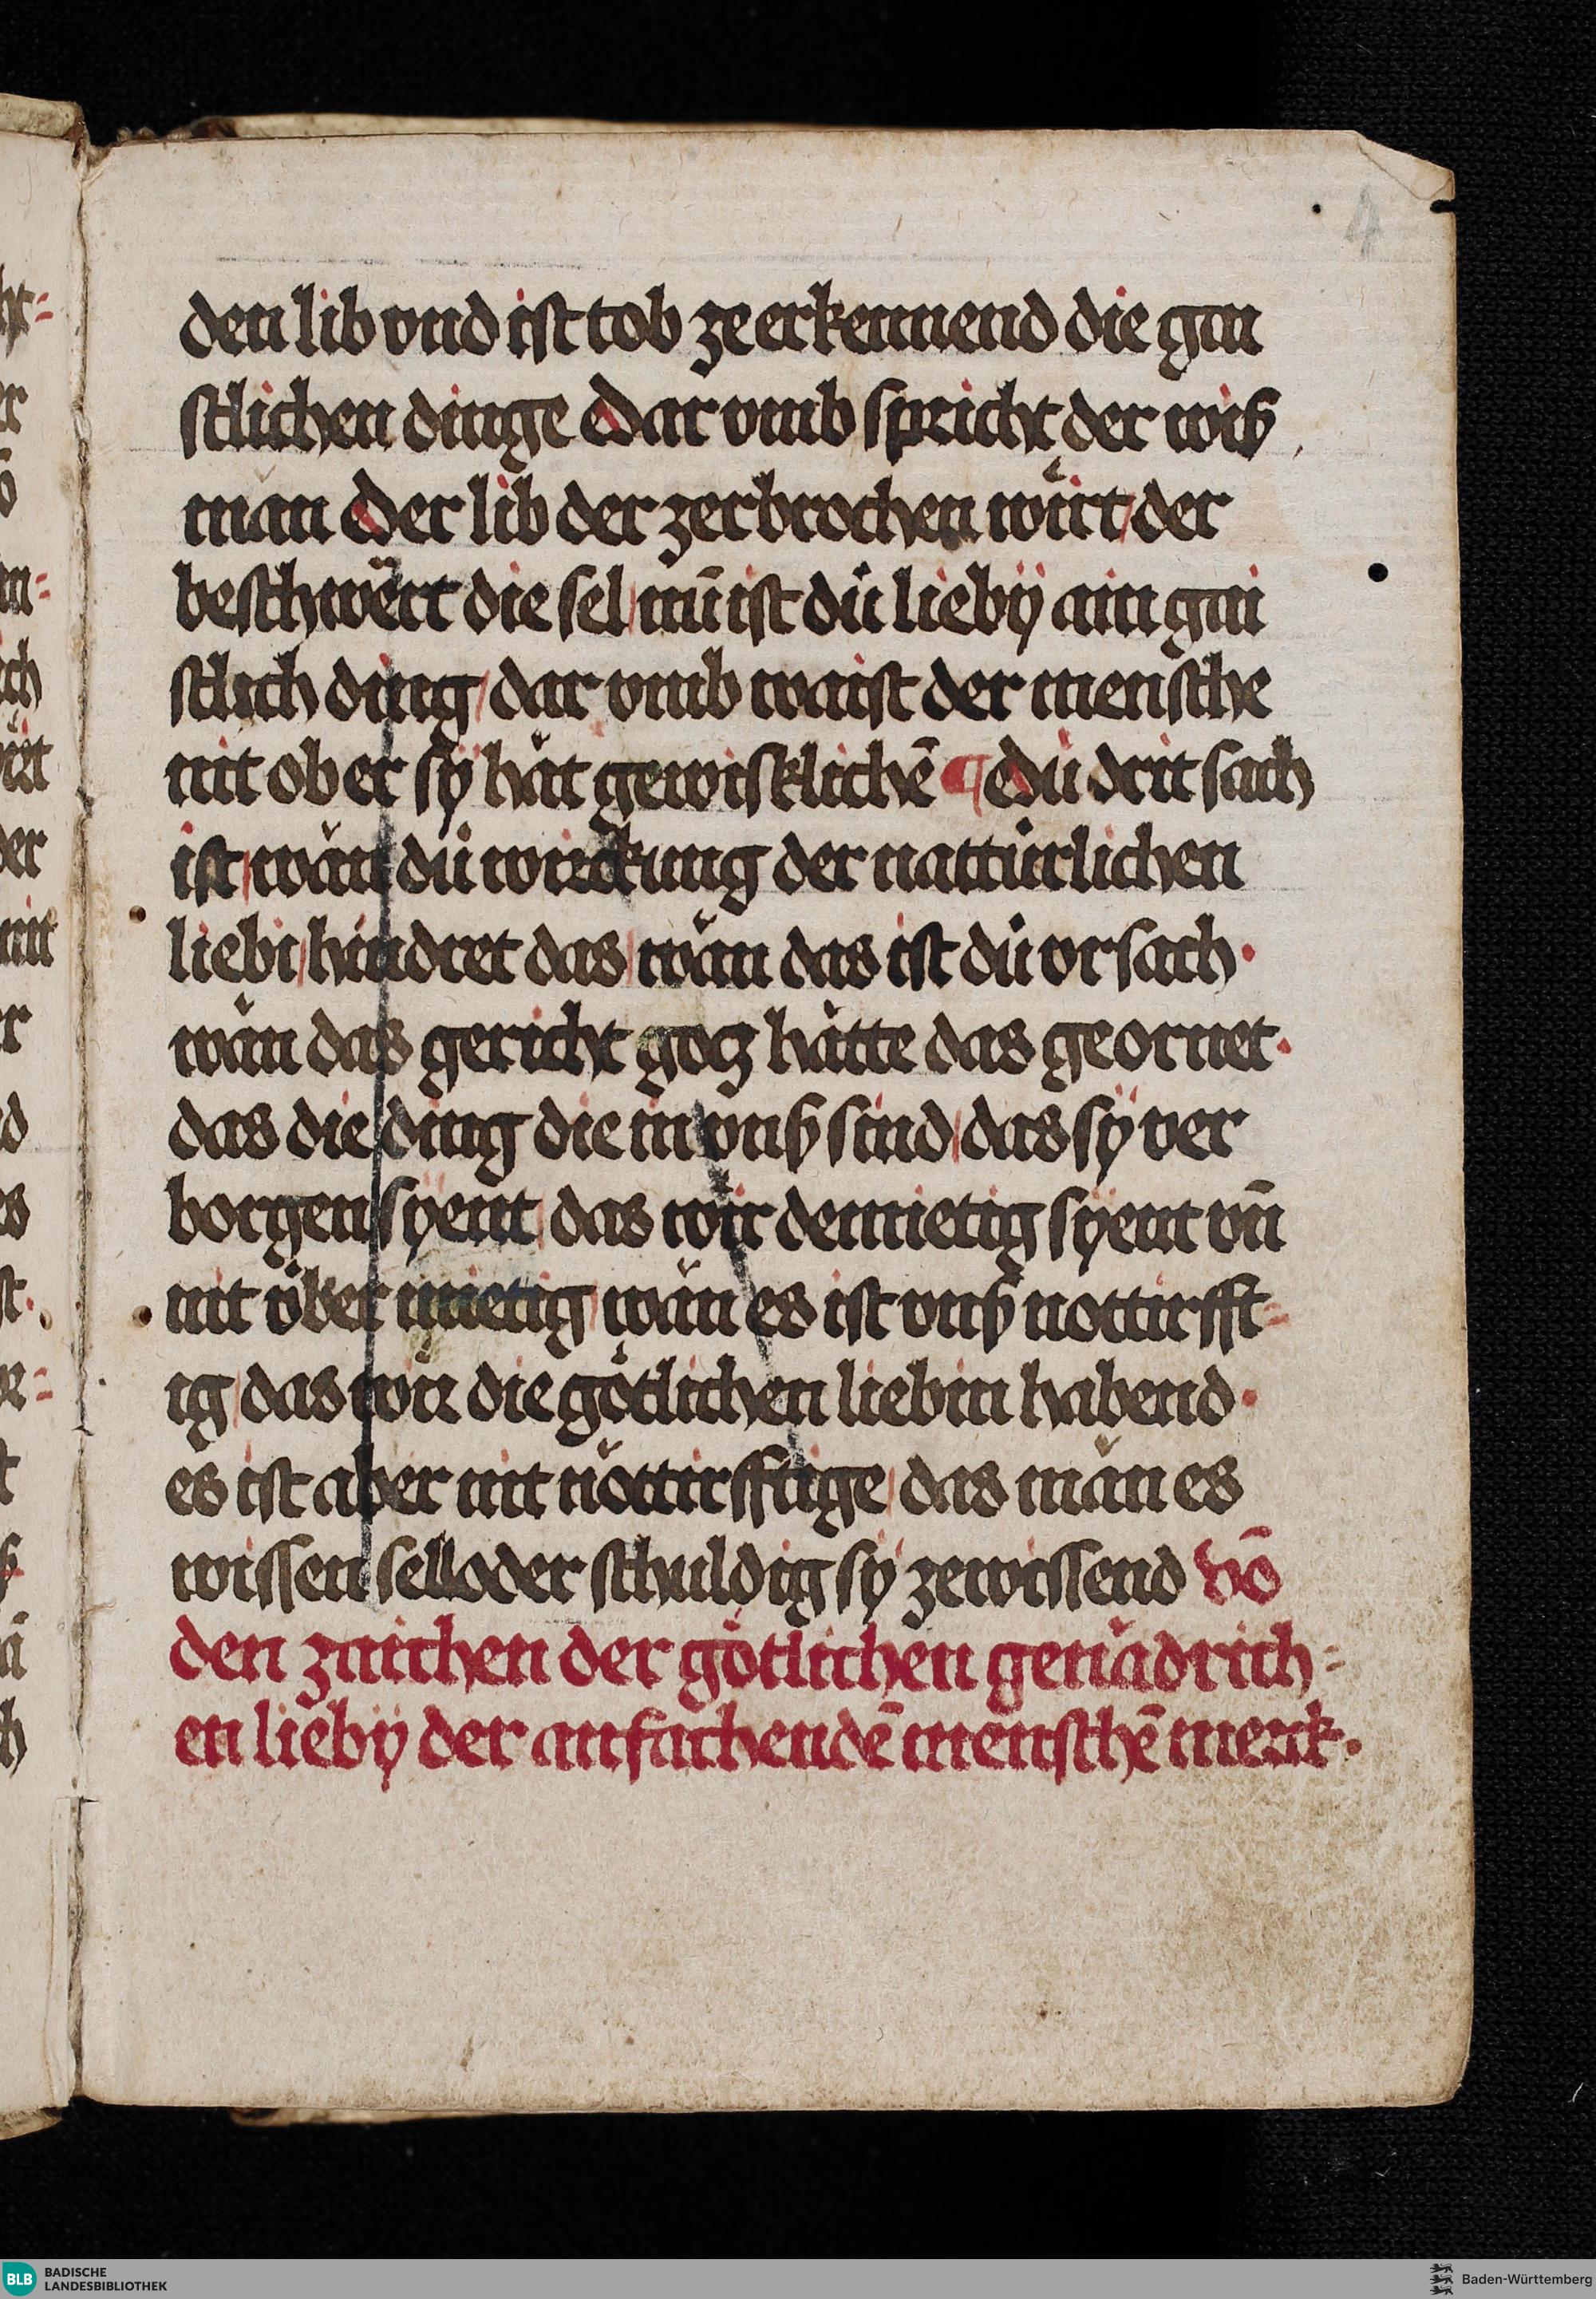 4
den lib vnd ist tob ze erkennend die gai
stlichen dinge Dar vmb spricht der wiß
man Der lib der zerbrochen wirt / der
beschwërt die sel / nū ist dü lieby ain gai
stlich ding / dar vmb waist der mensche
nit ob er sy hät gewisklichē ¶ Dü drit sach
ist / wän dü wirckung der nattürlichen
liebi / hindret das / wän das ist dü vrsach ·
wän das gericht gocz hätte das geornet ·
das die ding die in vnß sind / das sy ver
borgen syent / das wir demietig syent vn̄
nit über mietig / wän es ist vnß nottirfft=
ig / das wir die götlichen liebin habend ·
es ist aber nit nöttirfftige / das män es
wissen sell oder schuldig sy ze wissend vō
den zaichen der götlichen genädrich=
en lieby der anfachendē menschē merk ·
BLB BADISCHE
LANDESBIBLIOTHEK
Baden-Württemberg